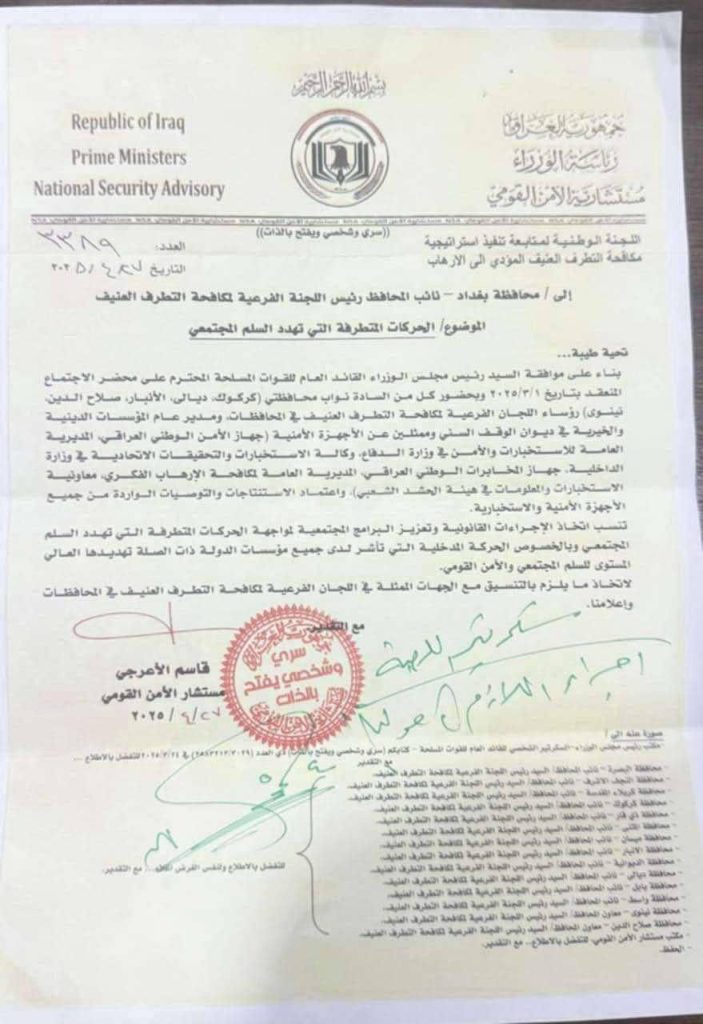 بسم الله الرحمن الرحيم
Republic of Iraq
Prime Ministers
National Security Advisory
جمهورية العراق
رئاسة الوزراء
مستشارية الأمن القومي
((سري وشخصي ويفتح بالذات))
اللجنة الوطنية لمتابعة تنفيذ استراتيجية
مكافحة التطرف العنيف المؤدي الى الارهاب
العدد: ٣٣٨٩
التاريخ ٢٠٢٥/٤/٢٧
إلى / محافظة بغداد – نائب المحافظ رئيس اللجنة الفرعية لمكافحة التطرف العنيف
الموضوع/ الحركات المتطرفة التي تهدد السلم المجتمعي
تحية طيبة...
بناء على موافقة السيد رئيس مجلس الوزراء القائد العام للقوات المسلحة المحترم على محضر الاجتماع
المنعقد بتاريخ ٢٠٢٥/٣/١ وبحضور كل من السادة نواب محافظتي (كركوك، ديالى، الأنبار، صلاح الدين،
نينوى) رؤساء اللجان الفرعية لمكافحة التطرف العنيف في المحافظات، ومدير عام المؤسسات الدينية
والخيرية في ديوان الوقف السني وممثلين عن الأجهزة الأمنية (جهاز الأمن الوطني العراقي، المديرية
العامة للاستخبارات والأمن في وزارة الدفاع، وكالة الاستخبارات والتحقيقات الاتحادية في وزارة
الداخلية، جهاز المخابرات الوطني العراقي، المديرية العامة لمكافحة الإرهاب الفكري، معاونية
الاستخبارات والمعلومات في هيئة الحشد الشعبي)، واعتماد الاستنتاجات والتوصيات الواردة من جميع
الأجهزة الأمنية والاستخبارية.
تنسب اتخاذ الإجراءات القانونية وتعزيز البرامج المجتمعية لمواجهة الحركات المتطرفة التي تهدد السلم
المجتمعي وبالخصوص الحركة المدخلية التي تأشر لدى جميع مؤسسات الدولة ذات الصلة تهديدها العالي
المستوى للسلم المجتمعي والأمن القومي.
لاتخاذ ما يلزم بالتنسيق مع الجهات الممثلة في اللجان الفرعية لمكافحة التطرف العنيف في المحافظات
وإعلامنا.
مع التقدير.
سري
وشخصي يفتح
بالذات
قاسم الأعرجي
مستشار الأمن القومي
٢٠٢٥/٤/٢٧
اجراء اللازم
صورة عنه الى /
- مكتب رئيس مجلس الوزراء- السكرتير الشخصي للقائد العام للقوات المسلحة – كتابكم (سري وشخصي ويفتح بالذات) ذي العدد في ٢٠٢٥/٣/٢٤ للتفضل بالاطلاع ...
مع التقدير
- محافظة البصرة – نائب المحافظ/ السيد رئيس اللجنة الفرعية لمكافحة التطرف العنيف.
- محافظة النجف الاشرف – نائب المحافظ/ السيد رئيس اللجنة الفرعية لمكافحة التطرف العنيف.
- محافظة كربلاء المقدسة – نائب المحافظ/ السيد رئيس اللجنة الفرعية لمكافحة التطرف العنيف.
- محافظة كركوك – نائب المحافظ/ السيد رئيس اللجنة الفرعية لمكافحة التطرف العنيف.
- محافظة ذي قار – نائب المحافظ/ السيد رئيس اللجنة الفرعية لمكافحة التطرف العنيف.
- محافظة المثنى – نائب المحافظ/ السيد رئيس اللجنة الفرعية لمكافحة التطرف العنيف.
- محافظة ميسان – نائب المحافظ/ السيد رئيس اللجنة الفرعية لمكافحة التطرف العنيف.
- محافظة الانبار – نائب المحافظ/ السيد رئيس اللجنة الفرعية لمكافحة التطرف العنيف.
- محافظة الديوانية – نائب المحافظ/ السيد رئيس اللجنة الفرعية لمكافحة التطرف العنيف.
- محافظة ديالى – نائب المحافظ/ السيد رئيس اللجنة الفرعية لمكافحة التطرف العنيف.
- محافظة بابل – نائب المحافظ/ السيد رئيس اللجنة الفرعية لمكافحة التطرف العنيف.
- محافظة واسط – نائب المحافظ/ السيد رئيس اللجنة الفرعية لمكافحة التطرف العنيف.
- محافظة نينوى – معاون المحافظ/ السيد رئيس اللجنة الفرعية لمكافحة التطرف العنيف.
- محافظة صلاح الدين – معاون المحافظ/ السيد رئيس اللجنة الفرعية لمكافحة التطرف العنيف.
للتفضل بالاطلاع ولنفس الغرض اعلاه... مع التقدير.
- مكتب مستشار الأمن القومي، للتفضل بالاطلاع... مع التقدير.
- الحفظ.